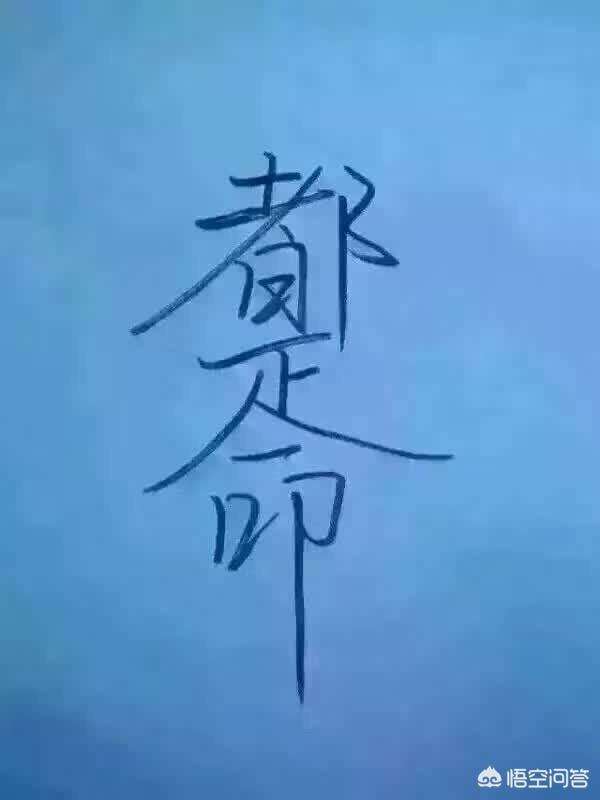 都是命
悟空问答